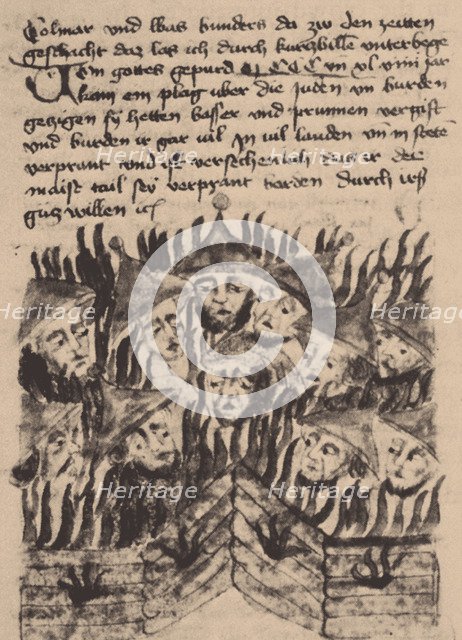 Colmar vnd was bunders da zw den zeitten
geschacht daz las ich durch kurczbille vnterbege
Von gottes gepurd MCCC vn xl viiii jar
kam ein plag vber die juden vn burden
geczigen sy hetten basser vnd prunnen vergift
vnd burden ir gar vil in vil landen vn in stete
verprant vnd ist versehenlich daz er der
maist tail sey verprant borden durch irs
gucz willen
Heritage
Heritage
Heritage
Heritage
Heritage
Heritage
©